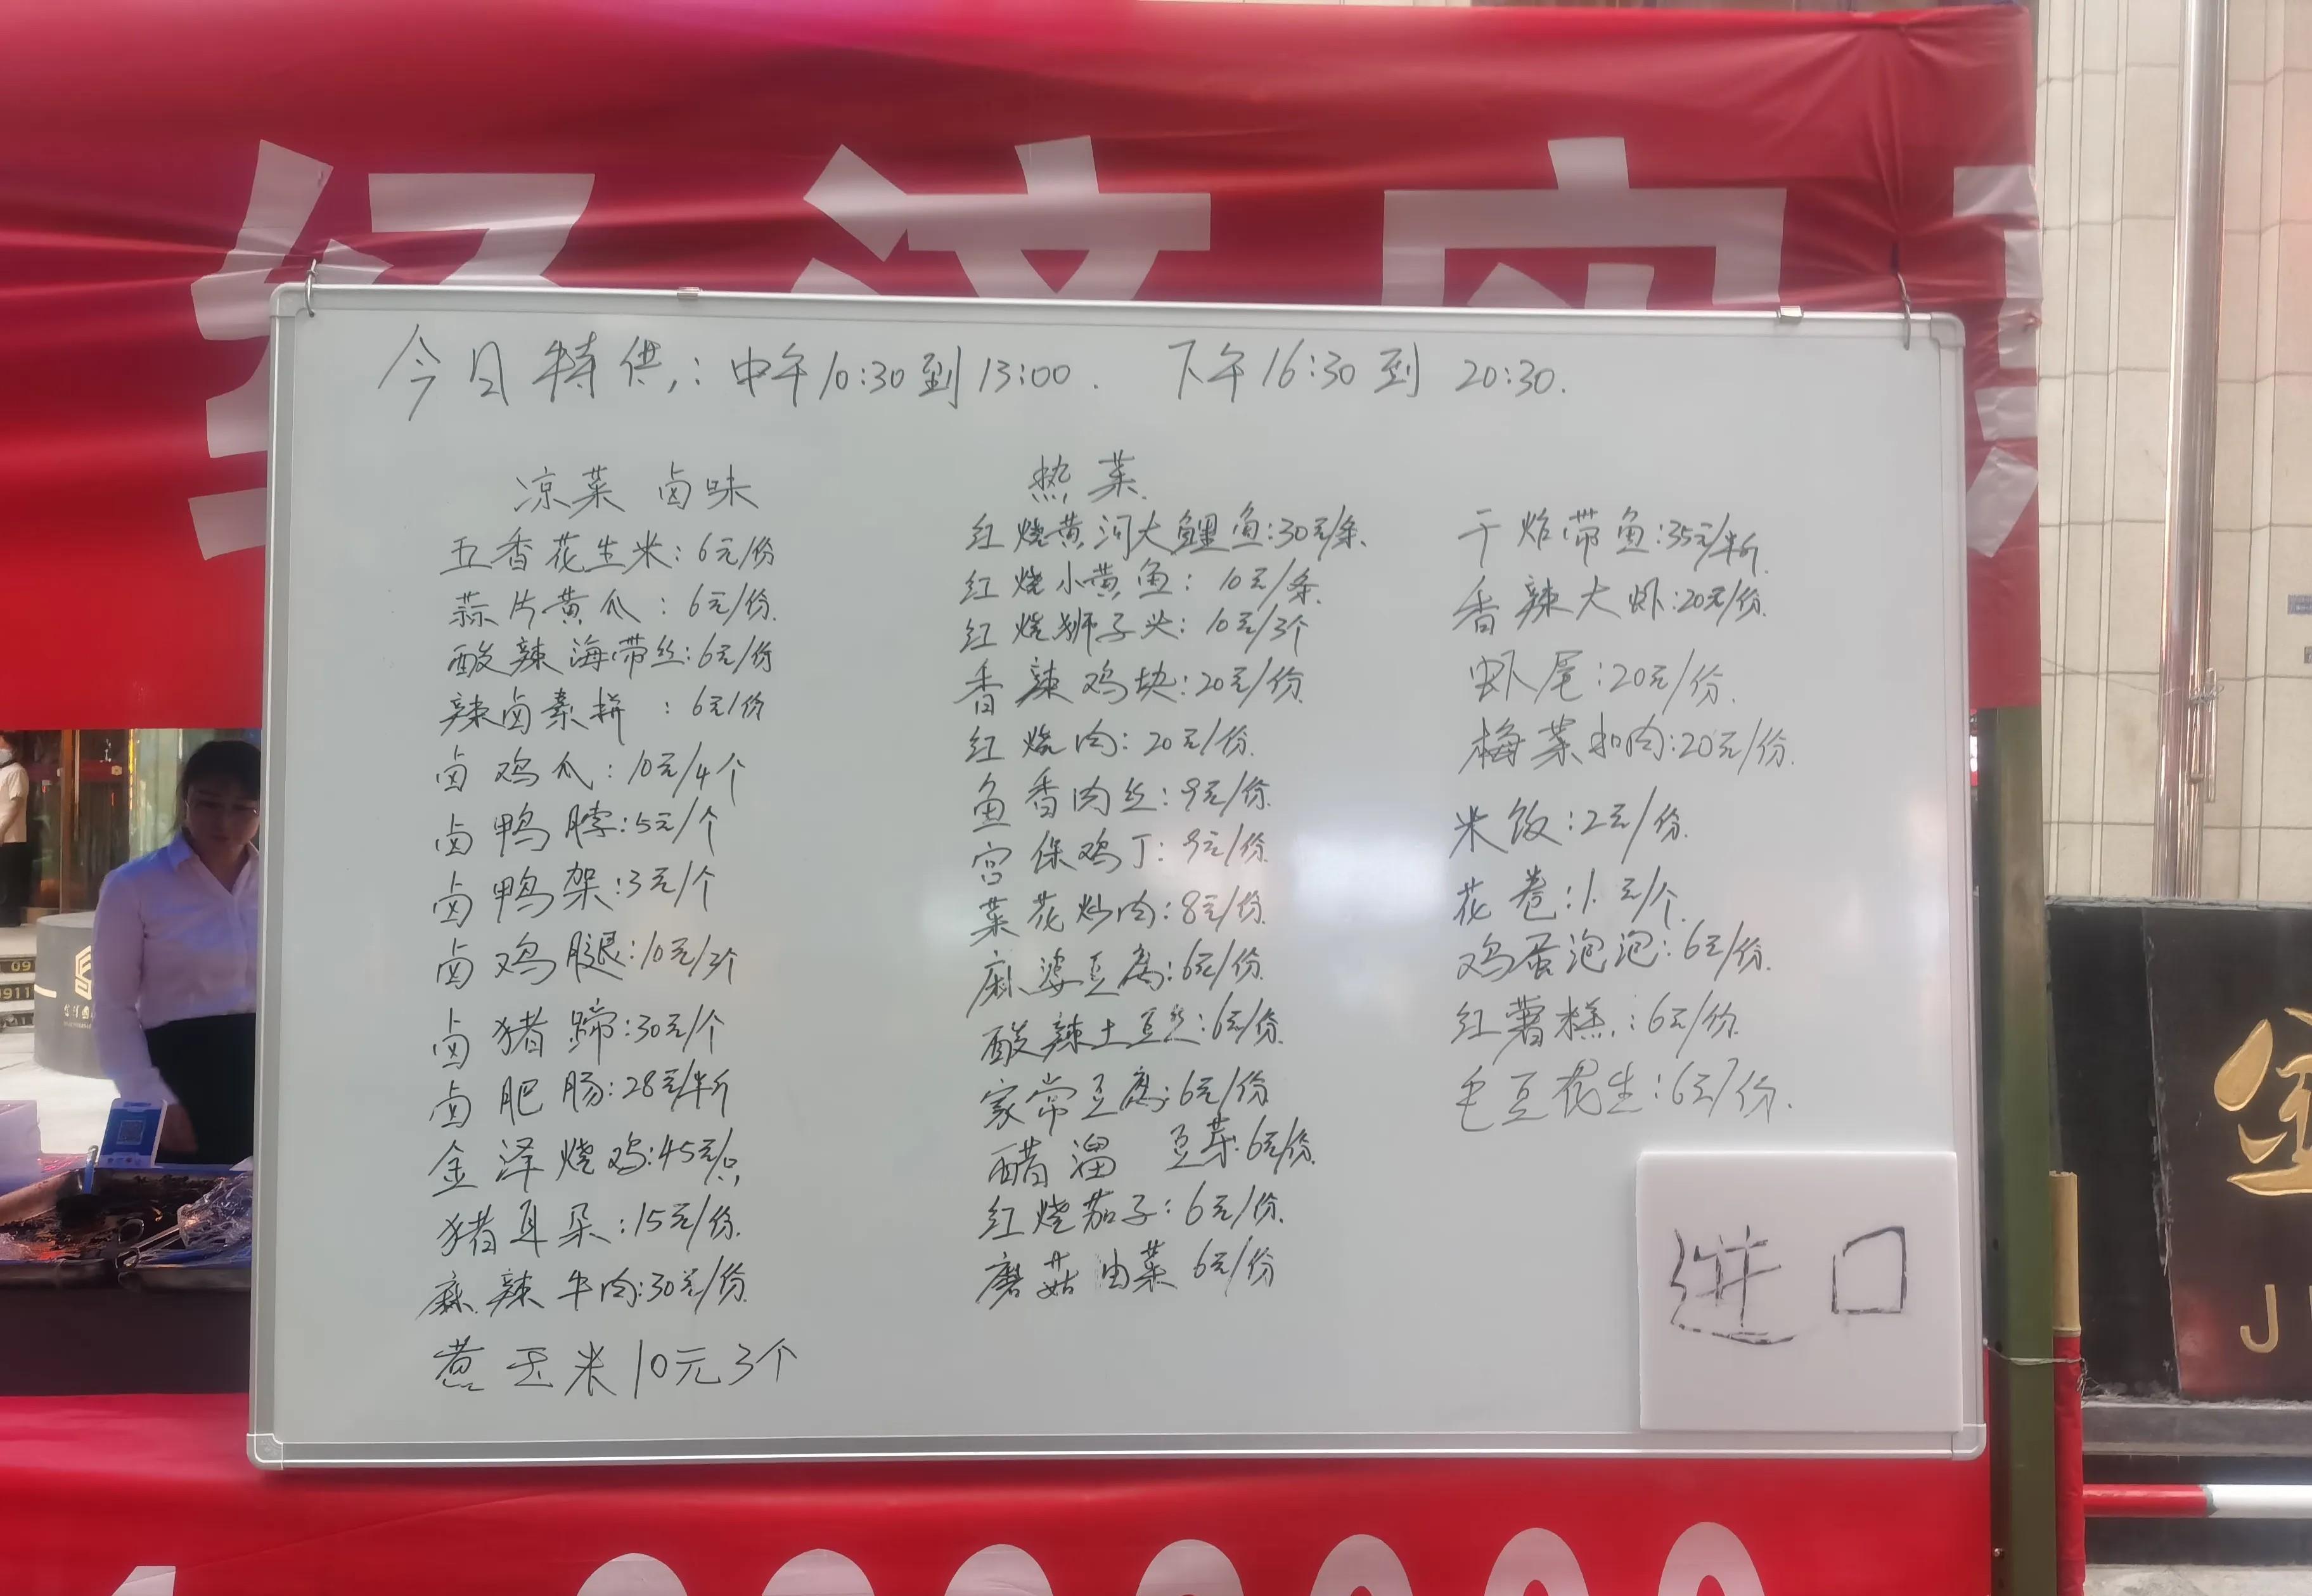 经济实
今日特供:中午10:30到13:00. 下午16:30到20:30.
凉菜 卤味
五香花生米:6元/份
蒜片黄瓜:6元/份.
酸辣海带丝:6元/份
辣卤素拼:6元/份
卤鸡爪:10元/4个
卤鸭脖:5元/个
卤鸭架:3元/个
卤鸡腿:10元/3个
卤猪蹄:30元/个
卤肥肠:28元/半斤
金泽烧鸡:45元/只
猪耳朵:15元/份.
麻辣牛肉:30元/份.
煮玉米10元3个
热菜.
红烧黄河大鲤鱼:30元/条.
红烧小黄鱼:10元/条.
红烧狮子头:10元/3个
香辣鸡块:20元/份.
红烧肉:20元/份.
鱼香肉丝:9元/份.
宫保鸡丁:9元/份.
菜花炒肉:8元/份.
麻婆豆腐:6元/份.
酸辣土豆丝:6元/份.
家常豆腐:6元/份
醋溜 豆芽:6元/份.
红烧茄子:6元/份.
蘑菇油菜6元/份
干炸带鱼:35元/半斤.
香辣大虾:20元/份.
虾尾:20元/份.
梅菜扣肉:20元/份.
米饭:2元/份.
花卷:1元/个.
鸡蛋泡泡:6元/份.
红薯糕:6元/份.
毛豆花生:6元/份.
进口
金
J
09
0911